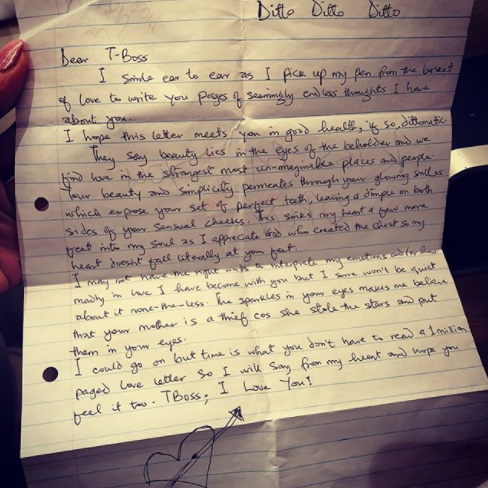 Ditto Ditto Ditto
Dear T-Boss
I smile ear to ear as I pick up my pen from the
of love to write you pages of seemingly endless thoughts I have
about you.
I hope this letter meets you in good health, if so, dittomatic
They say beauty lies in the eyes of the beholder and we
find love in the strangest most un-imaginable places and people.
Your beauty and simplicity permeates through your glowing smiles
which expose your set of perfect teeth, leaving a dimple on both
sides of your sensual cheeks. This sinks my heart a few more
feet into my soul as I appreciate God who created the chest so my
heart doesnt fall literally at your feet.
I may not have the right words to interprete my emotions and/or how
madly in love I have become with you but I sure won't be quiet
about it none-the-less. The sparkles in your eyes makes me believe
that your mother is a thief cos she stole the stars and put
them in your eyes.
I could go on but time is what you don't have to read a 1 million
paged love letter so I will say from my heart and hope you
feel it too. TBoss, I Love You!